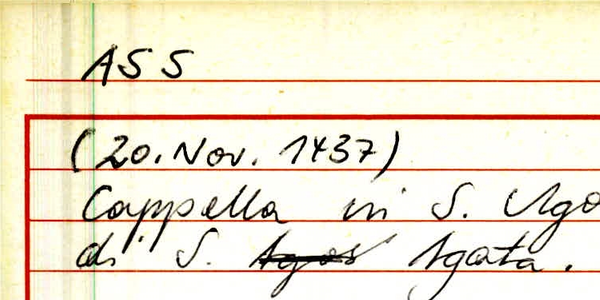 ASS
(20. Nov. 1437)
Cappella in S. Ago
di S. Agata.